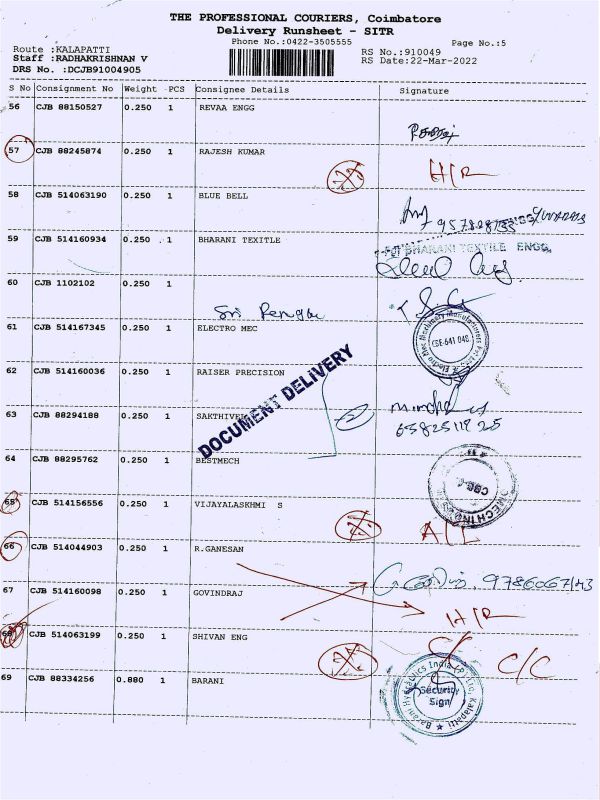 THE PROFESSIONAL COURIERS, Coimbatore
Delivery Runsheet - SITR
Phone No.:0422-3505555
Page No.:5
Route :KALAPATTI
RS No.:910049
Staff :RADHAKRISHNAN V
RS Date:22-Mar-2022
DRS No. :DCJB91004905
S No Consignment No Weight PCS Consignee Details Signature
56 CJB 88150527 0.250 1 REVAA ENGG
57 CJB 88245874 0.250 1 RAJESH KUMAR
H/R
58 CJB 514063190 0.250 1 BLUE BELL
59 CJB 514160934 0.250 1 BHARANI TEXITLE
BHARANI TEXTILE ENGG.
60 CJB 1102102 0.250 1
Sri
61 CJB 514167345 0.250 1 ELECTRO MEC
62 CJB 514160036 0.250 1 RAISER PRECISION
DOCUMENT DELIVERY
63 CJB 88294188 0.250 1 SAKTHIVEL
64 CJB 88295762 0.250 1 BESTMECH
65 CJB 514156556 0.250 1 VIJAYALASKHMI S
A/L
66 CJB 514044903 0.250 1 R.GANESAN
67 CJB 514160098 0.250 1 GOVINDRAJ
H/R
68 CJB 514063199 0.250 1 SHIVAN ENG
C/C
69 CJB 88334256 0.880 1 BARANI
Security
Sign